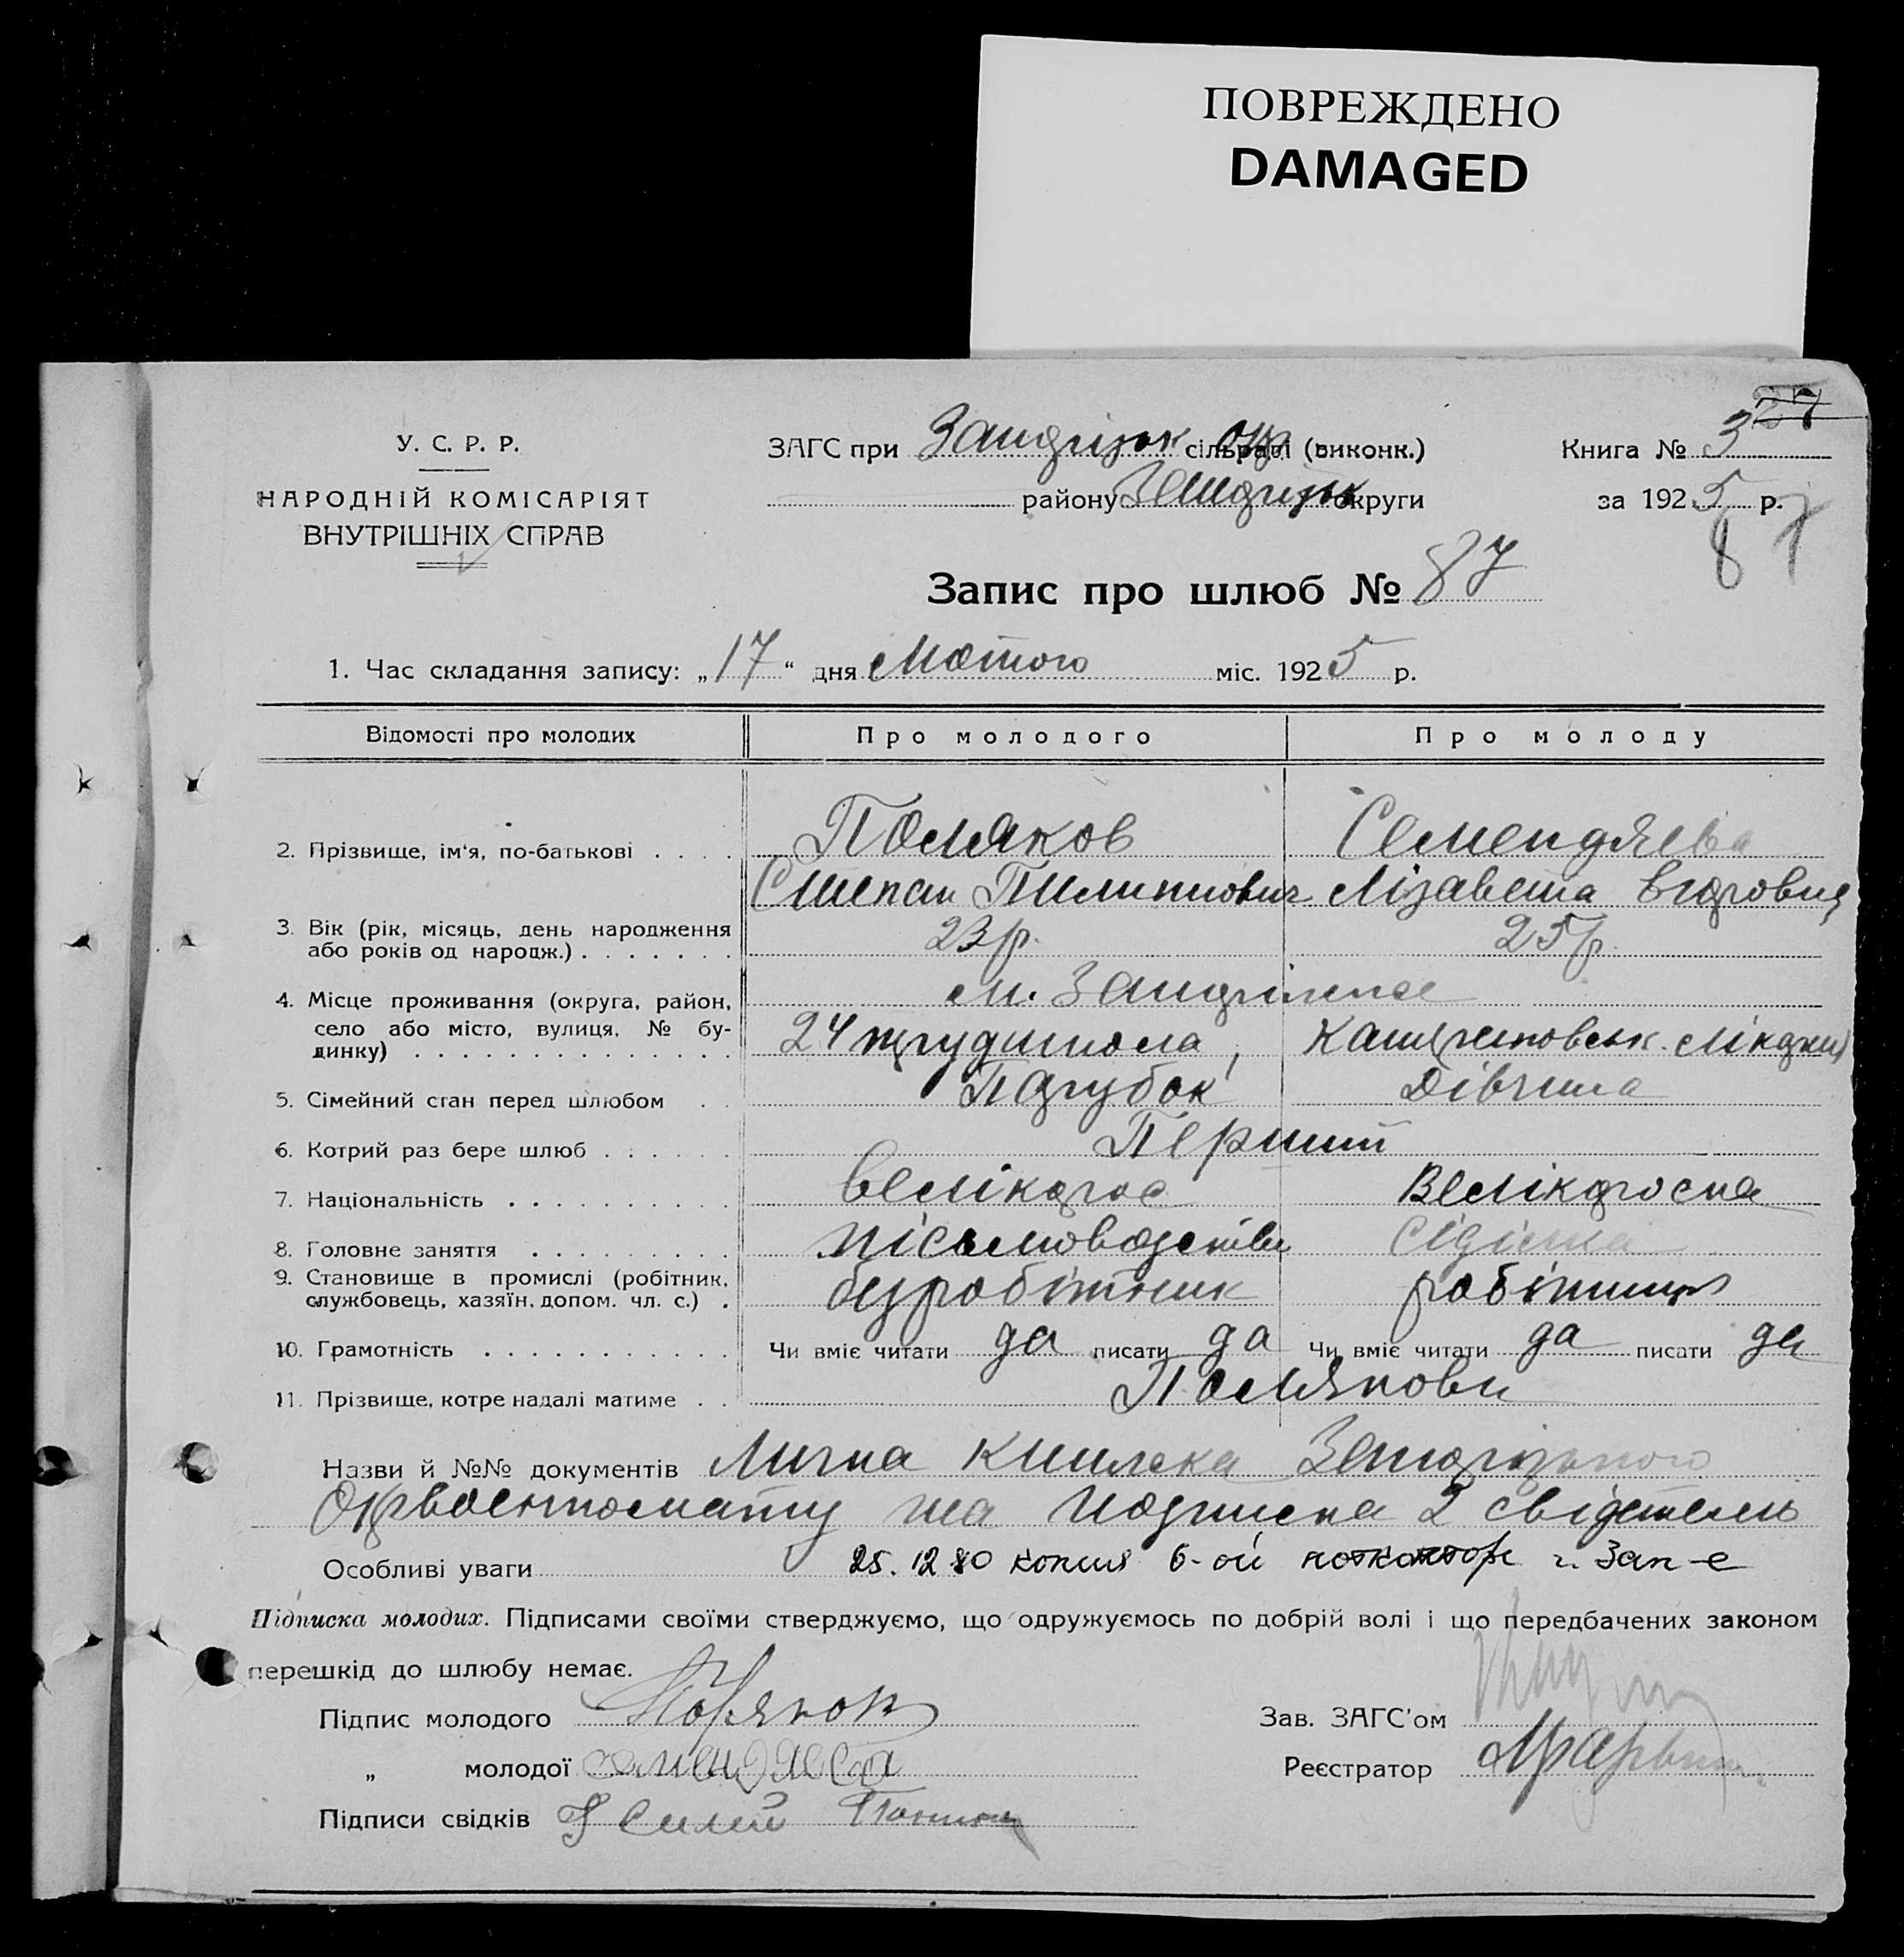 ПОВРЕЖДЕНО
DAMAGED
27
У. С. Р. Р.
НАРОДНІЙ КОМІСАРІЯТ
ВНУТРІШНІХ СПРАВ
ЗАГС при Запоріжськ сільраді (виконк.)
району Запоріжськ округи
Книга № 3
за 1925 р.
87
Запис про шлюб № 87
1. Час складання запису: „17“ дня Лютого міс. 1925 р.
Відомості про молодих Про молодого Про молоду
2. Прізвище, ім'я, по-батькові . . . . Поляков Семендяева
Степан Пилиппович Лізавета
3. Вік (рік, місяць, день народження або років од народж.) . . . . . . . 23 р. 25 р.
4. Місце проживання (округа, район, село або місто, вулиця, № будинку) . . . . . . . . . . . . . . м. Запоріжжа
24 трудшкола,
5. Сімейний стан перед шлюбом . . Парубок Дівчина
6. Котрий раз бере шлюб . . . . . . Перший
7. Національність . . . . . . . . . . Велікорос Велікороска
8. Головне заняття . . . . . . . . .
9. Становище в промислі (робітник, службовець, хазяїн, допом. чл. с.) . безробітник робітниця
10. Грамотність . . . . . . . . . . . Чи вміє читати да писати да Чи вміє читати да писати да
11. Прізвище, котре надалі матиме . . Полякови
Назви й №№ документів Лична книжка Запорізького
Окрвоенкомату та подписка 2 свідетель
Особливі уваги 25.12 80 копия 6-ой г. Зап-е
Підписка молодих. Підписами своїми стверджуємо, що одружуємось по добрій волі і що передбачених законом
перешкід до шлюбу немає.
Підпис молодого Поляков
Зав. ЗАГС'ом
„ молодої Семендяева
Реєстратор
Підписи свідків